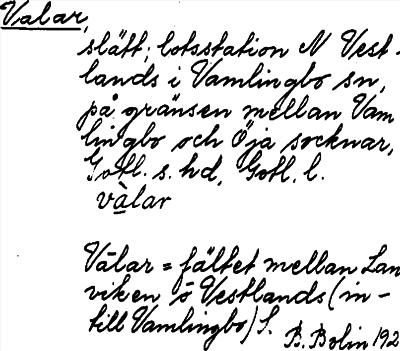 Valar,
slätt; lotsstation N Vest-
lands i Vamlingbo sn,
på gränsen mellan Vam
lingbo och Öja socknar,
Gotl. s. hd, Gotl. l.
vàlar
Vālar = fältet mellan Lan
viken ö Vestlands (in-
till Vamlingbo) S.
B. Bolin 192